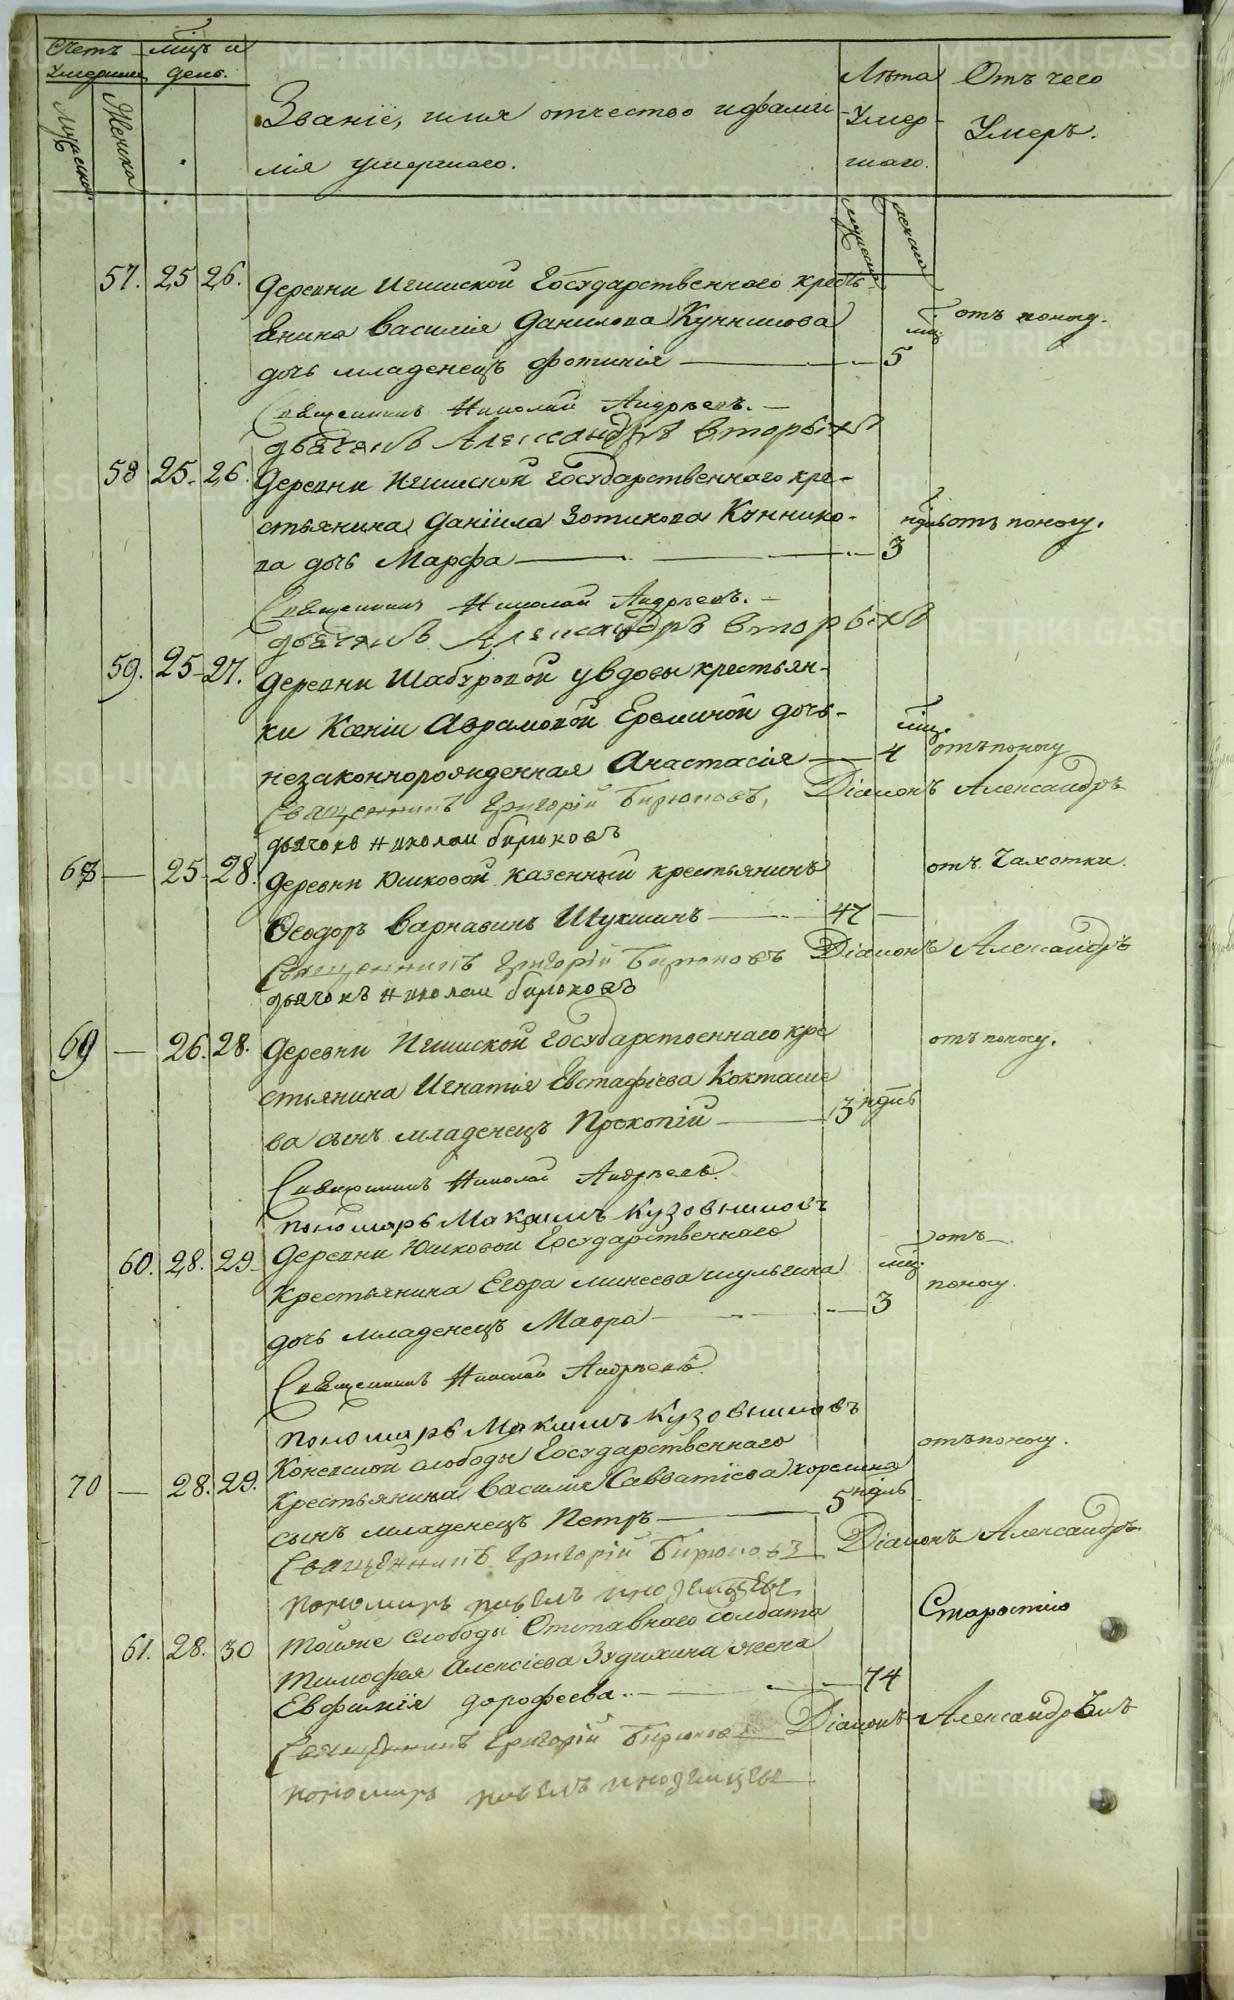 Счетъ Умершихъ
Мужеска
Женска
Мцъ и день.
Званіе, имя отчество и фамилія умершаго.
Лѣта Умершаго.
мужеска
женска
Отъ чего Умеръ.
57. 25 26. Деревни Игишской Государственнаго кресть-
янина Василія Данилова Кунникова отъ поносу.
дочь младенецъ Фотинія — мцъ 5
Священникъ Николай Андреевъ.
дьячекъ Александръ Вторыхъ
58 25. 26. Деревни Игишской Государственнаго кре-
стьянина Даніила Зотикова Кннико- ндль отъ поносу.
ва дочь Марфа — 3
Священникъ Николай Андреевъ.
дьячекъ Александръ Вторыхъ
59. 25 27. Деревни Шабуровой у вдовы крестьян-
ки Ксеніи Аврамовой Ереминой дочь мцъ.
незаконнорожденная Анастасія — 4 отъ поносу
Священникъ Григорій Бирюковъ, Діаконъ Александръ
дьячокъ Николай Бирюковъ
68 — 25 28. Деревни Юшковой казенный крестьянинъ отъ Чахотки.
Ѳеодоръ Варнавинъ Шукшинъ — 47 —
Священникъ Григорій Бирюковъ Діаконъ Александръ
дьячокъ Николай Бирюковъ
69 — 26. 28. Деревни Игишской Государственнаго кре отъ поносу.
стьянина Игнатія Евстафіева Кокташе
ва сынъ младенецъ Прокопій — 3 ндль
Священникъ Николай Андреевъ.
пономарь Максимъ Кузовниковъ
60. 28. 29 Деревни Юшковой Государственнаго отъ
крестьянина Егора Минеева Шульгина мцъ. поносу.
дочь младенецъ Мавра — 3
Священникъ Николай Андреевъ.
пономарь Максимъ Кузовниковъ
70 — 28. 29. Слободы Государственнаго отъ поносу.
крестьянина Василія Савватіева Корелина
сынъ младенецъ Петръ — 5 ндль
Священникъ Григорій Бирюковъ Діаконъ Александръ
пономарь Павелъ Иноземцевъ
61. 28. 30 Тойже Слободы Отставнаго Солдата Старостію
Тимофея Алексіева Зудихина жена
Евфимія Дорофеева — 74
Священникъ Григорій Бирюковъ Діаконъ Александровъ
пономарь Павелъ Иноземцевъ
METRIKI.GASO-URAL.RU